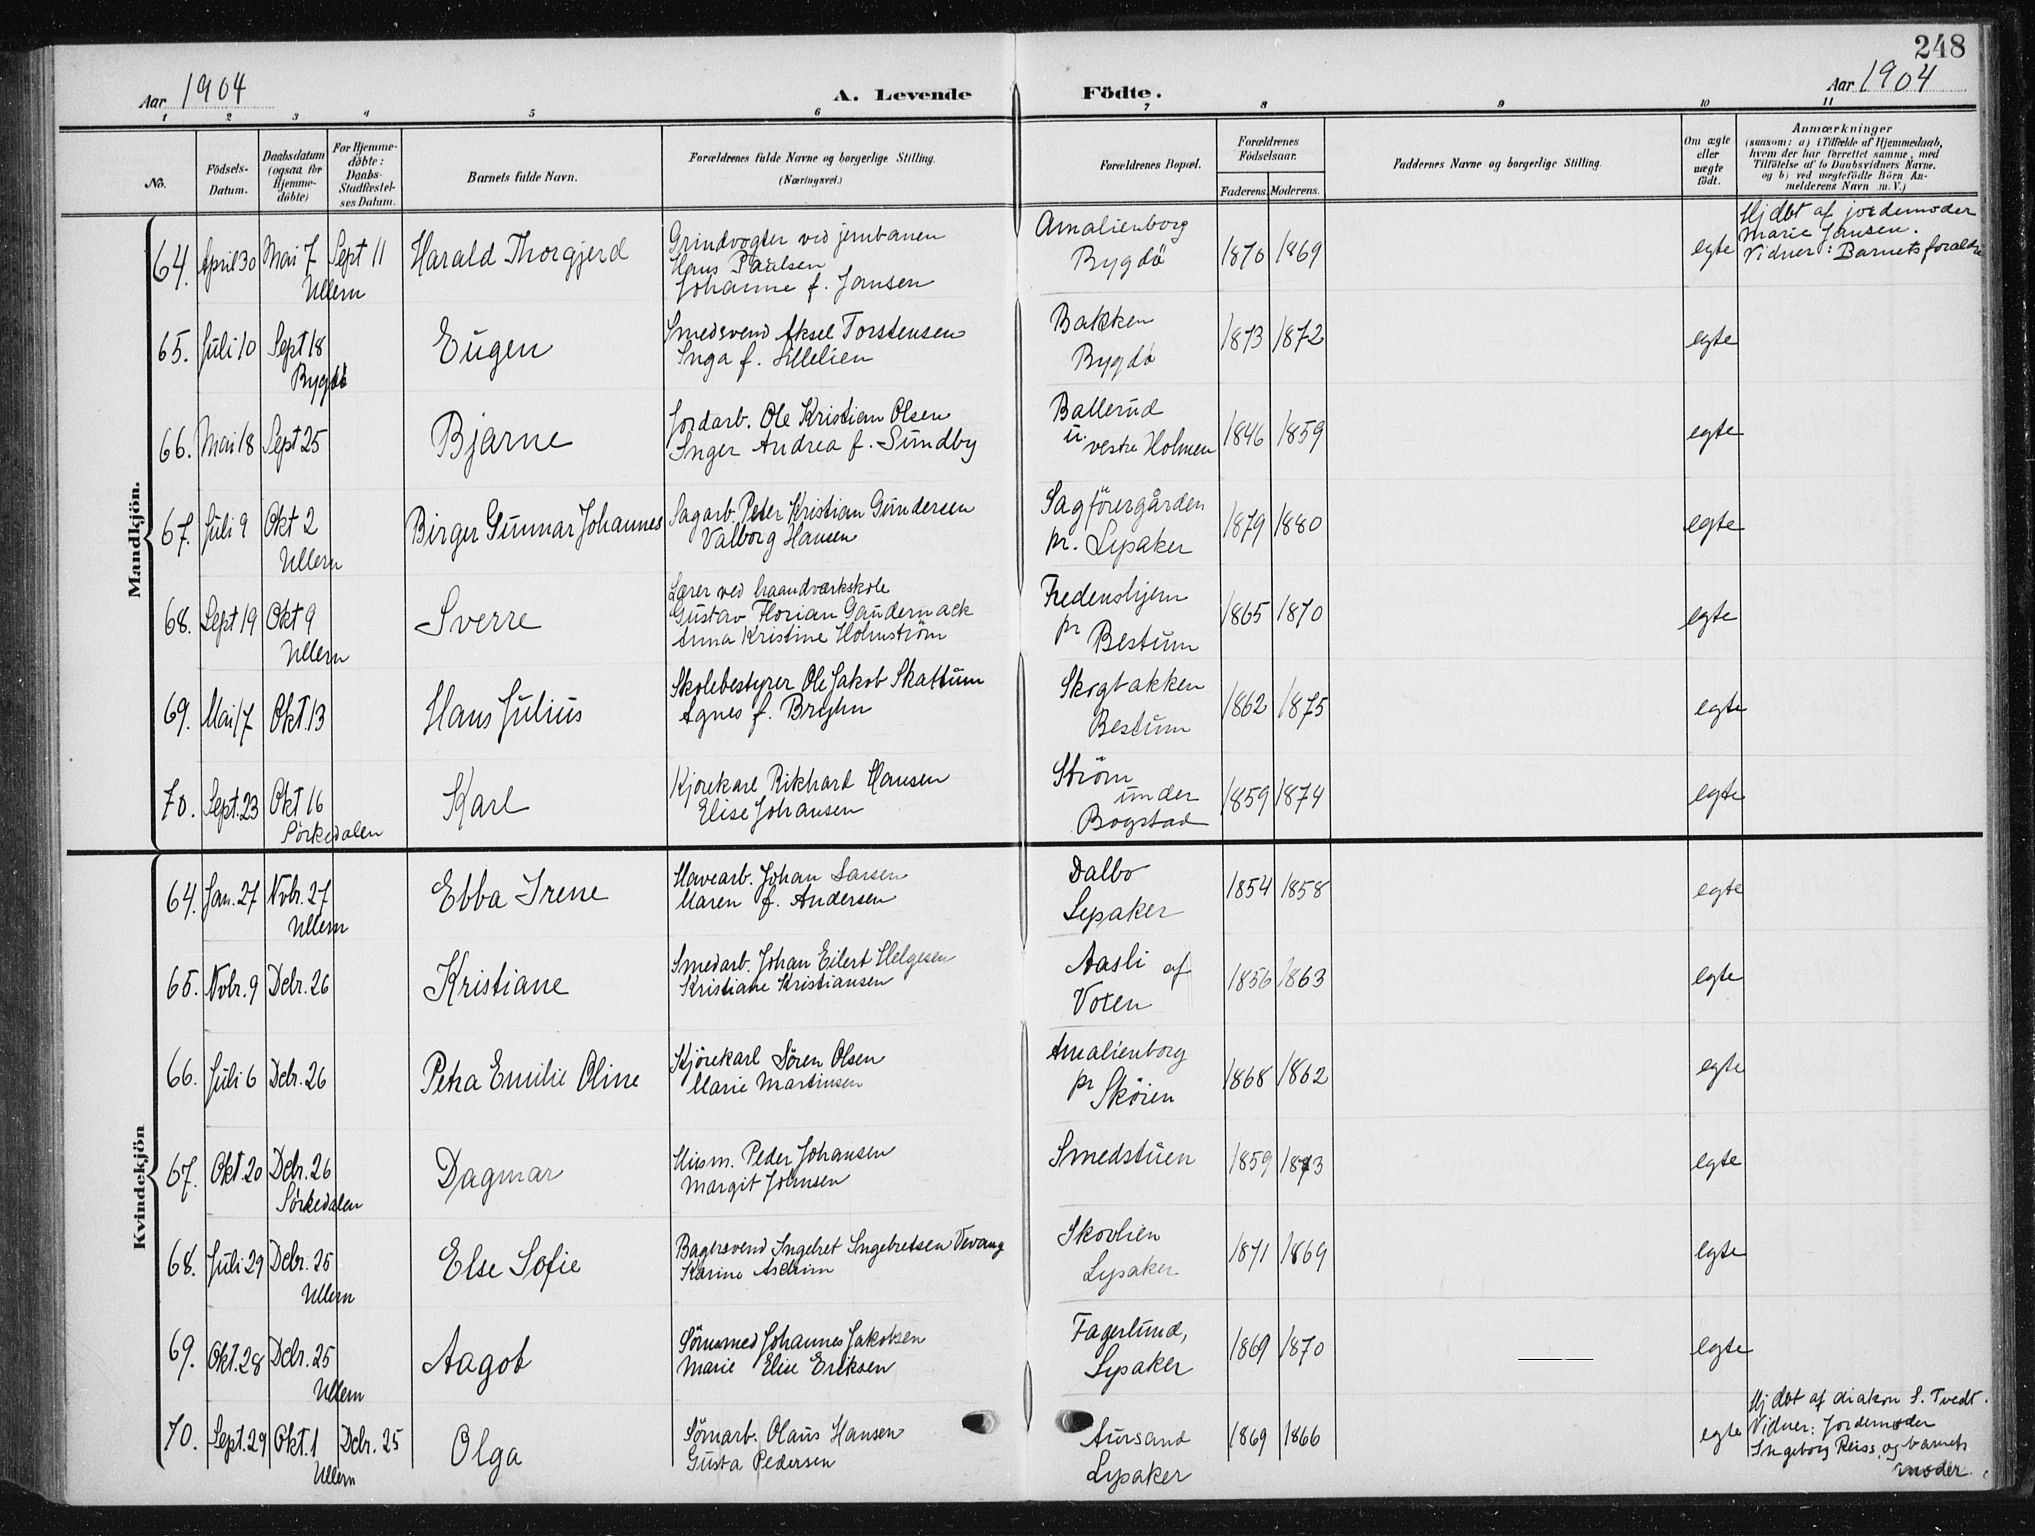 248
Aar 1904
A. Levende Födte.
Aar 1904
1 2 3 4 5 6 7 8 9 10 11
No.
Födsels-Datum.
Daabsdatum (ogsaa for Hjemmedöbte)
For Hjemmedöbte: Daabs-Stadfæstelses Datum.
Barnets fulde Navn.
Forældrenes fulde Navne og borgerlige Stilling. (Næringsvei.)
Forældrenes Bopæl.
Forældrenes Födselsaar.
Faderens. Moderens.
Faddernes Navne og borgerlige Stilling.
Om ægte eller uægte födt.
Anmærkninger
(saasom: a) i Tilfælde af Hjemmedaab, hvem der har forrettet samme, med Tilföielse af to Daabsvidners Navne, og b) ved uægtefödte Börn Anmelderens Navn m. V.)
Mandkjön.
64. April 30 Mai 7 Sept 11 Harald Thorgjerd Grindvogter ved jernbanen Amalienborg 1870 1869 egte Hj dbt af jordemoder
Ullern Hans Paulsen Bygdö Marie Jansen.
Johanne f. Jansen Vidner: Barnets foraldre
65. Juli 10 Sept 18 Eugen Smedsvend Aksel Torstensen Bakken 1873 1872 egte
Bygdö Inga f. Lillelien Bygdö
66. Mai 18 Sept 25 Bjarne Jordarb. Ole Kristian Olsen Ballerud 1846 1859 egte
Inger Andrea f. Sundby u. vestre Holmen
67. Juli 9 Okt 2 Birger Gunnar Johannes Sagarb. Peter Kristian Gundersen Sagförergården 1879 1880 egte
Ullern Valborg Hansen pr. Lysaker
68. Sept 19 Okt 9 Sverre Lærer ved haandværkskole Fredenshjem 1865 1870 egte
Ullern Gustav Florian Gaudernack pr Bestum
Anna Kristine Holmström
69. Mai 17 Okt. 13 Hans Julius Skolebestyrer Ole Jakob Skattum Skogbakken 1862 1875 egte
Agnes f. Bryhn Bestum
70. Sept. 23 Okt 16 Karl Kjörekarl Rikhard Hansen Ström 1859 1874 egte
Sörkedalen Elise Johansen under Bogstad
Kvindekjön
64. Jan. 27 Nvbr. 27 Ebba Irene Havearb. Johan Larsen Dalbo 1854 1858 egte
Ullern Maren f. Andersen Lysaker
65. Nvbr. 9 Debr. 26 Kristiane Smedarb. Johan Eilert Helgesen Aasli af 1856 1863 egte
Kristiane Kristiansen Voxen
66. Juli 6 Debr. 26 Petra Emilie Oline Kjörekarl Sören Olsen Amalienborg 1868 1862 egte
Marie Martinsen pr Sköien
67. Okt. 20 Debr. 26 Dagmar Husm. Peder Johansen Smedstuen 1859 1873 egte
Sörkedalen Margit Johnsen
68. Juli 29 Debr. 25 Else Sofie Bagersvend Ingebret Ingebretsen Vevang Skovlien 1871 1869 egte
Ullern Karine Lysaker
69. Okt. 28 Debr. 25 Aagot Sömsmed Johannes Jakobsen Fagerlund, 1869 1870 egte
Ullern Marie Elise Eriksen Lysaker
70. Sept. 29 Okt. 1 Debr. 25 Olga Sömarb. Olaus Hansen Aursand 1869 1866 egte Hj dbt af diakon S. Tvedt.
Ullern Gusta Pedersen Lysaker Vidner: Jordemoder
Ingeborg Reiss, og barnets
moder.